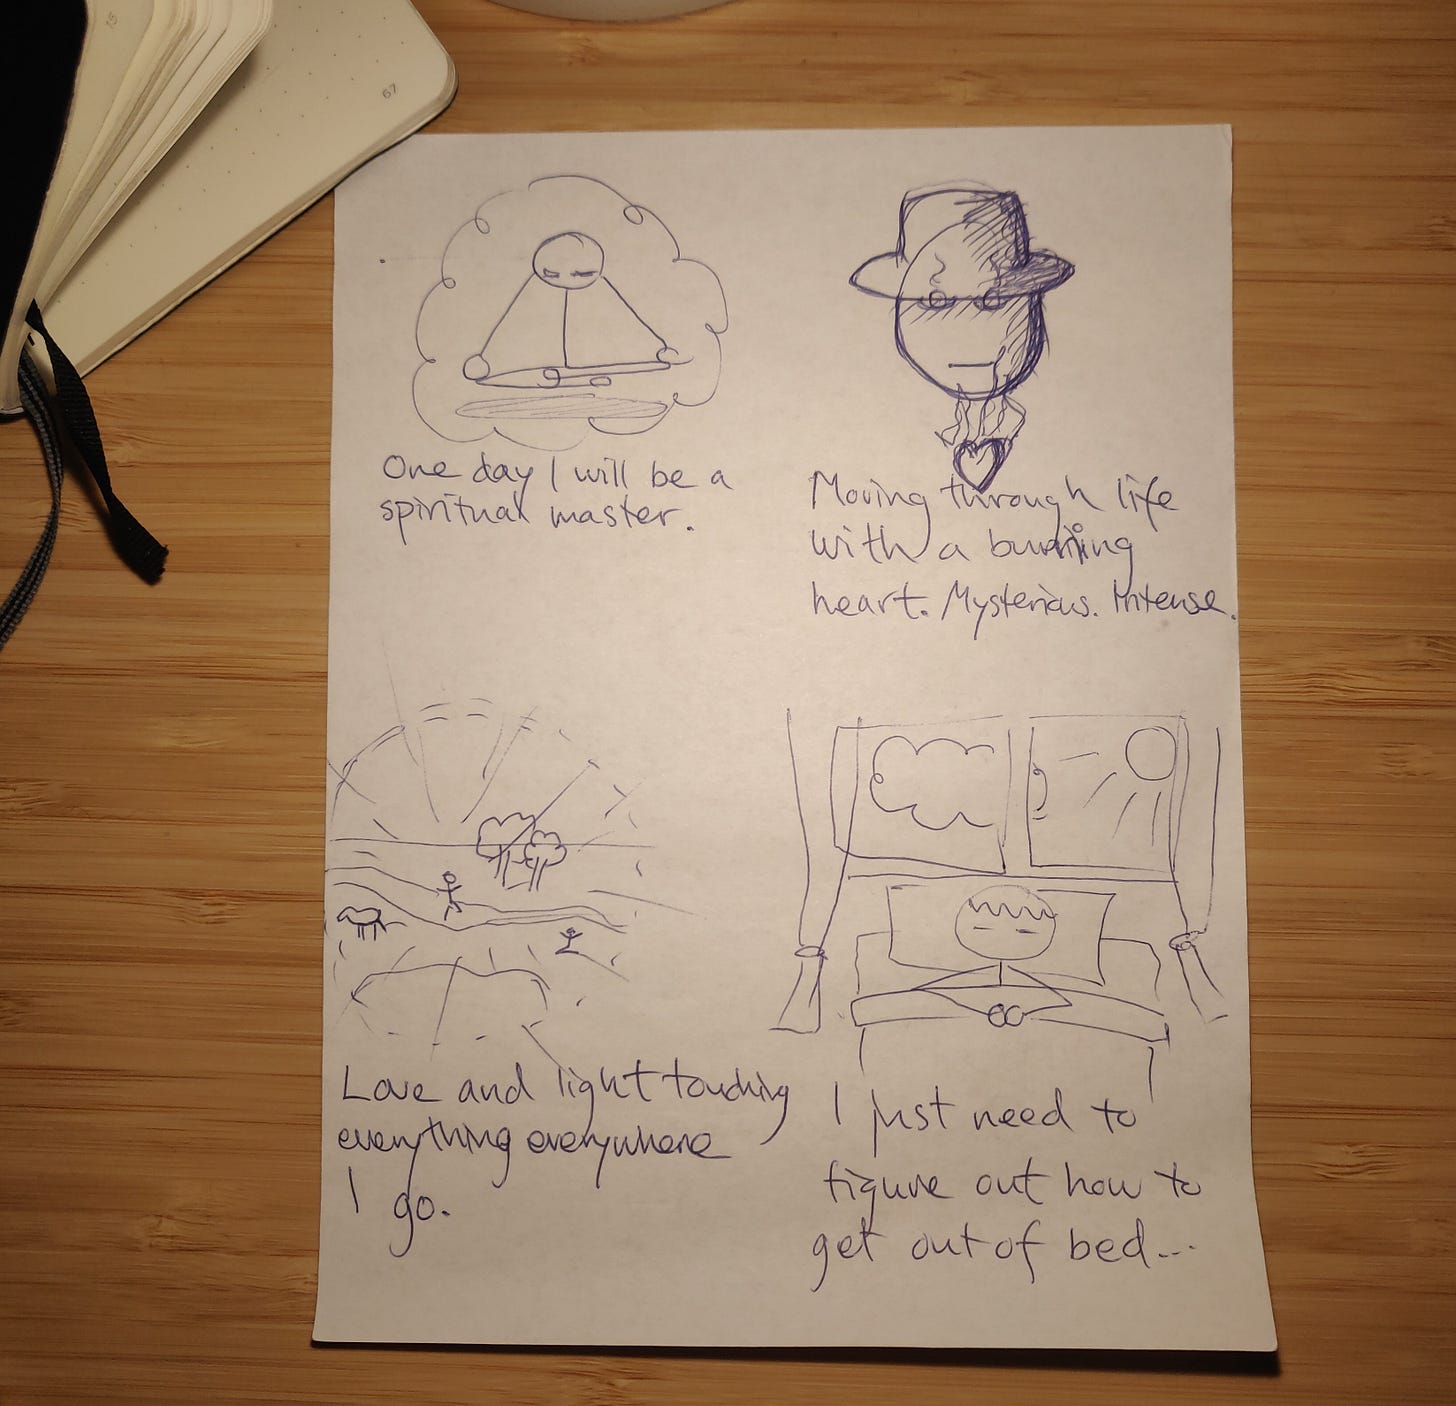 67
One day I will be a
spiritual master.
Moving through life
with a burning
heart. Mysterious. Intense.
Love and light touching
everything everywhere
I go.
I just need to
figure out how to
get out of bed...